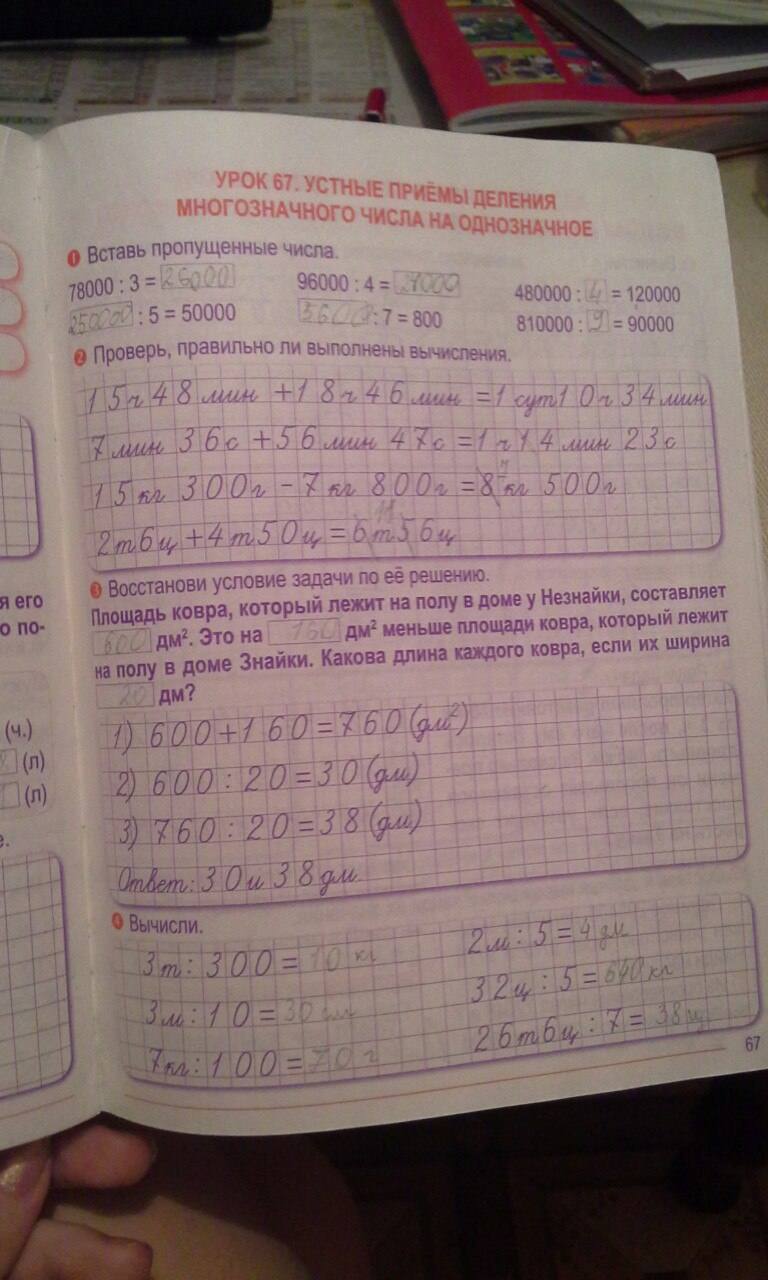 УРОК 67. УСТНЫЕ ПРИЁМЫ ДЕЛЕНИЯ
МНОГОЗНАЧНОГО ЧИСЛА НА ОДНОЗНАЧНОЕ
1 Вставь пропущенные числа.
78000 : 3 = 26000 96000 : 4 = 480000 : 4 = 120000
250000 : 5 = 50000 5600 : 7 = 800 810000 : 9 = 90000
2 Проверь, правильно ли выполнены вычисления.
15ч 48 мин + 18ч 46 мин = 1 сут 10ч 34 мин
7 мин 36с + 56 мин 47с = 1ч 14 мин 23с
15кг 300г - 7кг 800г = 8кг 500г
2т6ц + 4т50ц = 6т56ц
3 Восстанови условие задачи по её решению.
я его
о по-
Площадь ковра, который лежит на полу в доме у Незнайки, составляет
600 дм². Это на 160 дм² меньше площади ковра, который лежит
на полу в доме Знайки. Какова длина каждого ковра, если их ширина
20 дм?
(ч.)
(л)
(л)
е.
1) 600 + 160 = 760 (дм²)
2) 600 : 20 = 30 (дм)
3) 760 : 20 = 38 (дм)
Ответ: 30 и 38 дм
4 Вычисли.
3т : 300 = 10 кг 2м : 5 = 4 дм
3м : 10 = 30 см 32ц : 5 = 640 кг
7кг : 100 = 70 г 26т6ц : 7 = 38 ц
67